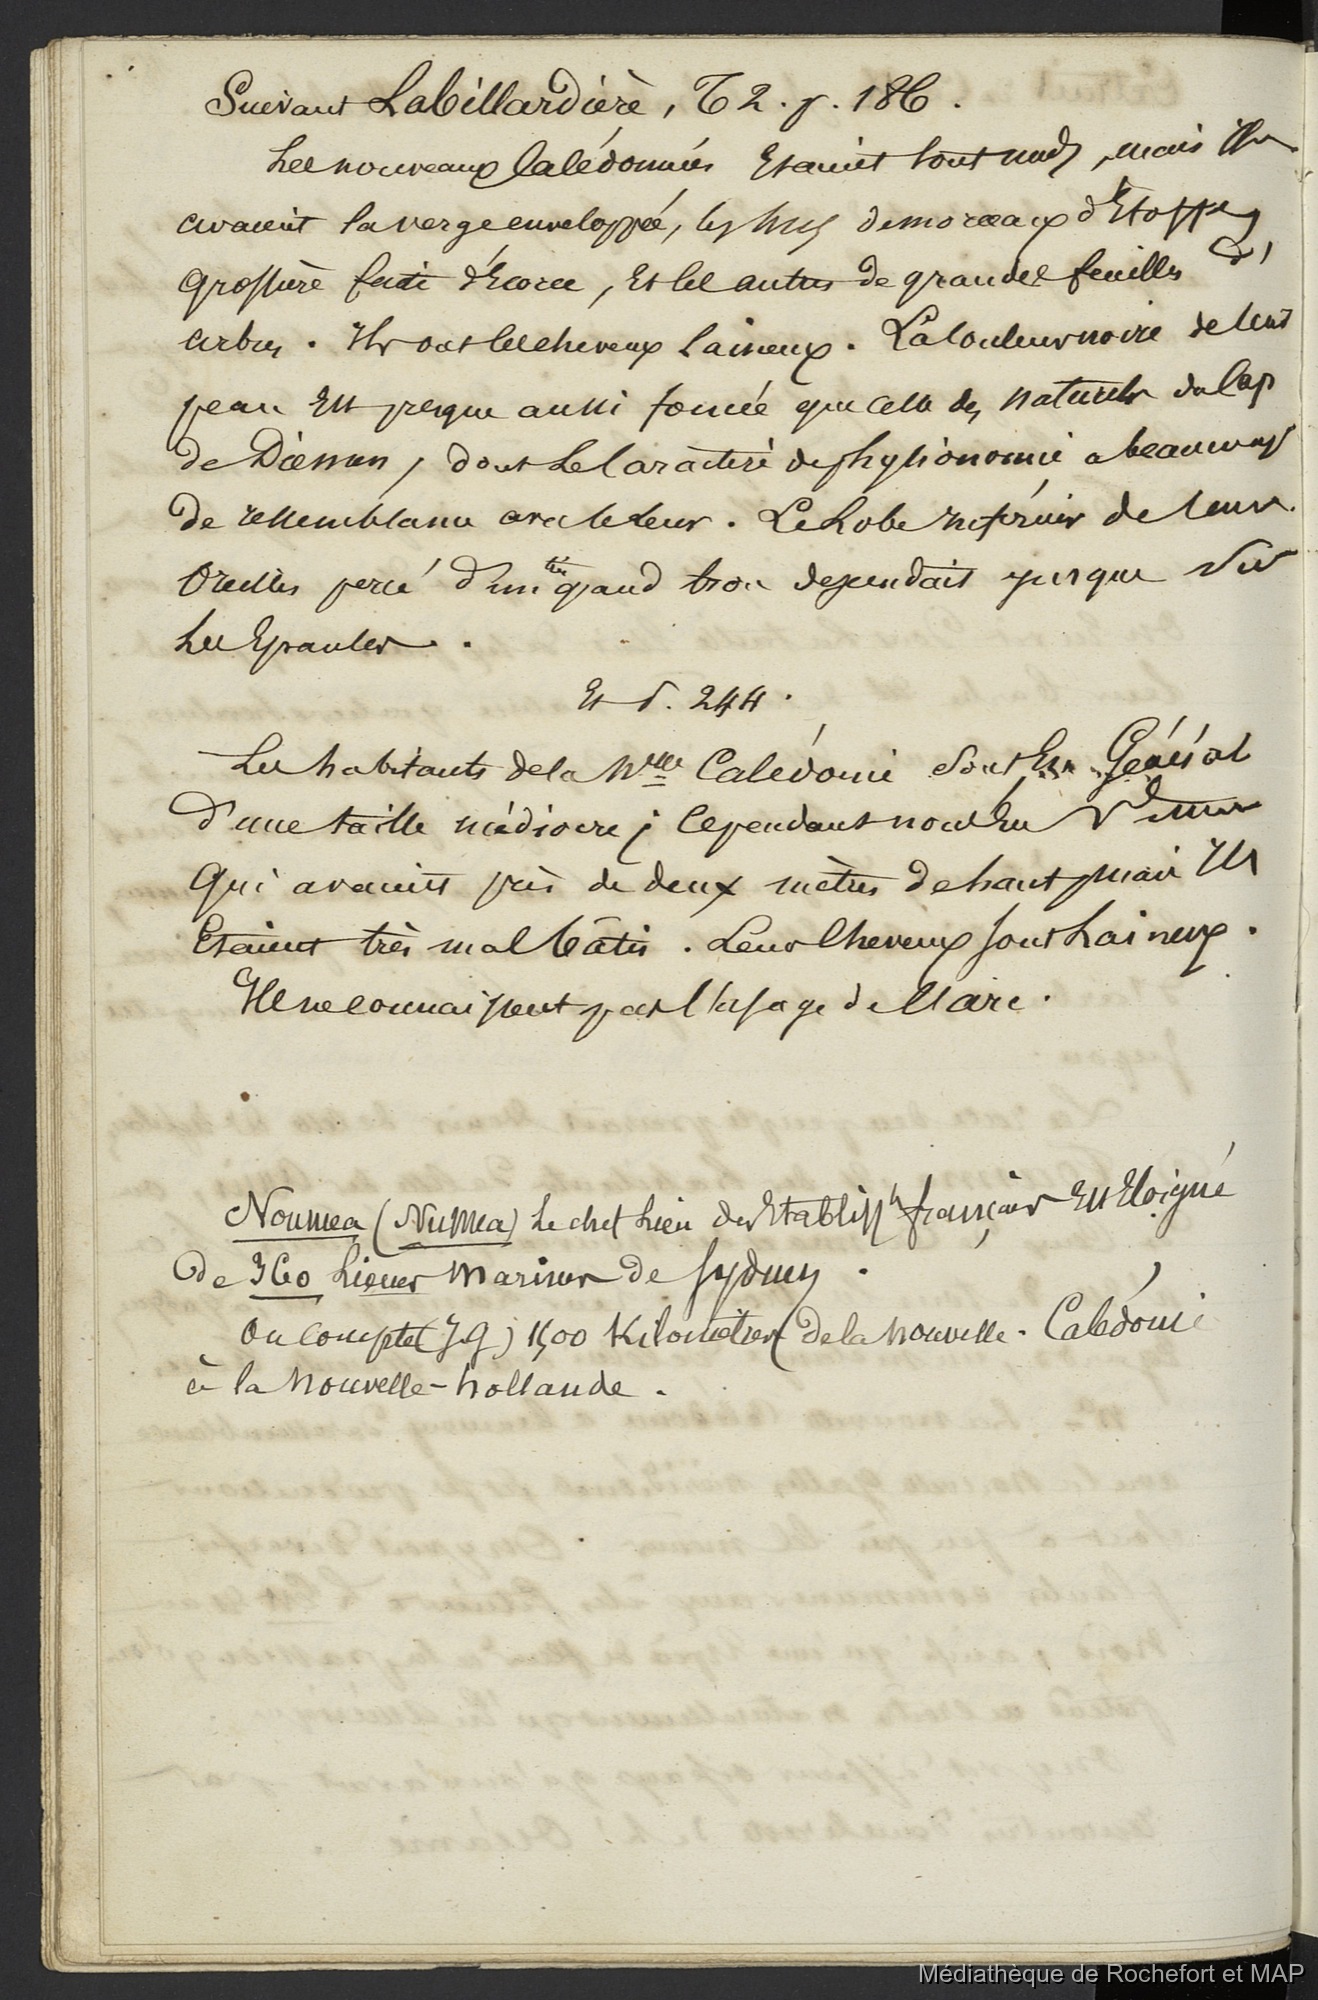 Suivant Labillardière, T 2. p. 186.
Les nouveaux Calédoniens Etaient tout nuds, mais ils
avaient la verge enveloppée, les uns de morceaux d'Etoffes
grossière faite d'Ecorce, Et les autres de grandes feuilles d'
arbres. Ils ont les cheveux laineux. La Couleur noire de leur
peau Est presque aussi foncée que celle des naturels du Cap
de Diemen, dont le Caractère de physionomie a beaucoup
de ressemblance avec le leur. Le Lobe inférieur de leurs
Oreilles percé d'un très grand trou descendait jusque sur
les Epaules.
Et p. 244.
Les habitants de la Nelle Calédonie sont En Général
d'une taille médiocre; Cependant nous En vîmes
Qui avaient près de deux mètres de haut, mais Ils
Etaient très mal bâtis. Leurs Cheveux sont Laineux.
Ils ne connaissent pas l'usage de l'arc.
Noumea (Numea) le chef lieu des Etablissts français Est Eloigné
De 360 Lieues marines de Sydney.
On Compte 1,500 Kilomètres de la nouvelle-Calédonie
à la nouvelle-hollande.
Médiathèque de Rochefort et MAP